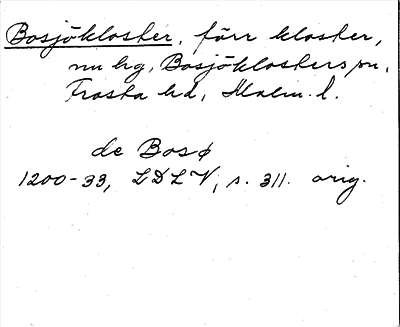 Bosjökloster, förr kloster,
nu hg, Bosjöklosters sn,
Frosta hd, Malm. l.
de Bosø
1200-33, LDLV, s. 311. orig.